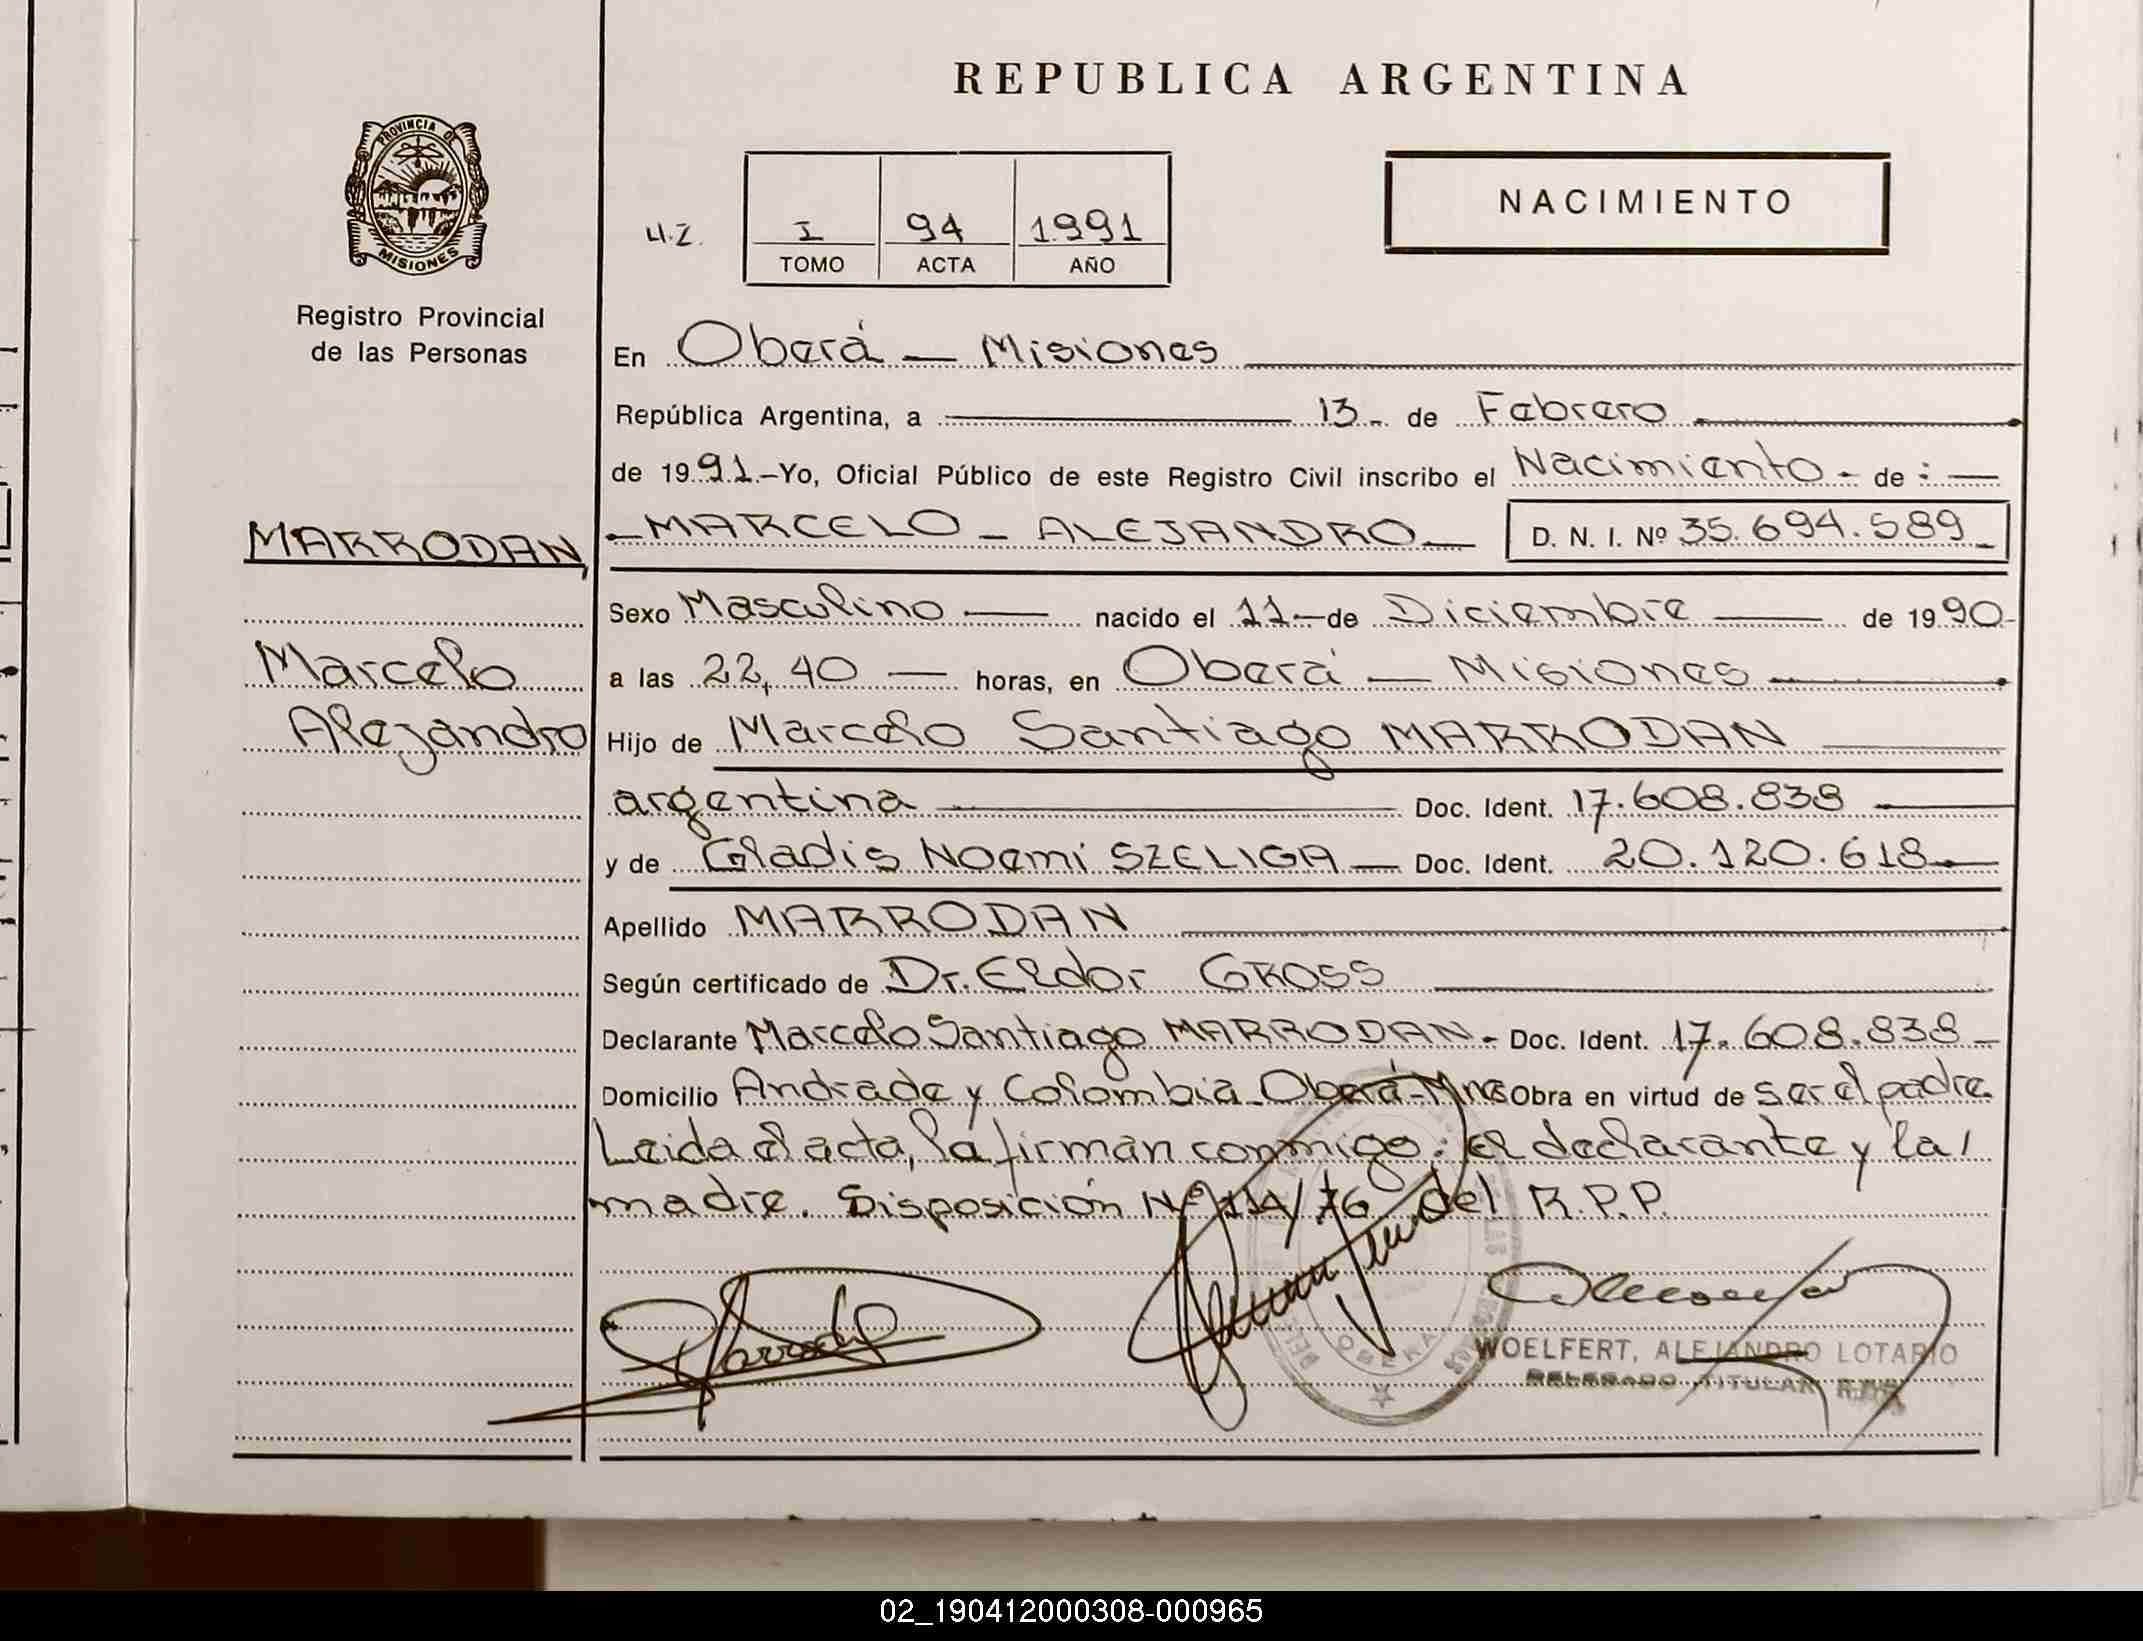 REPUBLICA ARGENTINA
PROVINCIA DE
MISIONES
Registro Provincial
de las Personas
NACIMIENTO
I 94 1991
TOMO ACTA AÑO
En Oberá — Misiones
República Argentina, a 13- de Febrero
de 1991.-Yo, Oficial Público de este Registro Civil inscribo el Nacimiento - de : —
MARRODAN,
- MARCELO - ALEJANDRO — D. N. I. Nº 35.694.589 -
Sexo Masculino — nacido el 11 - de Diciembre — de 1990-
Marcelo
a las 22,40 — horas, en Oberá — Misiones
Alejandro
Hijo de Marcelo Santiago MARRODAN
argentina — Doc. Ident. 17.608.838 —
y de Gladis Noemi SZELIGA — Doc. Ident. 20.120.618 —
Apellido MARRODAN
Según certificado de Dr. Eldor GROSS
Declarante Marcelo Santiago MARRODAN - Doc. Ident. 17.608.838 -
Domicilio Andrade y Colombia - Oberá - Mnes Obra en virtud de ser el padre.
Leida el acta, la firman conmigo: el declarante y la /
madre. Disposición Nº 114/76 del R.P.P.
OBERA
WOELFERT, ALEJANDRO LOTARIO
DELEGADO TITULAR
02_190412000308-000965